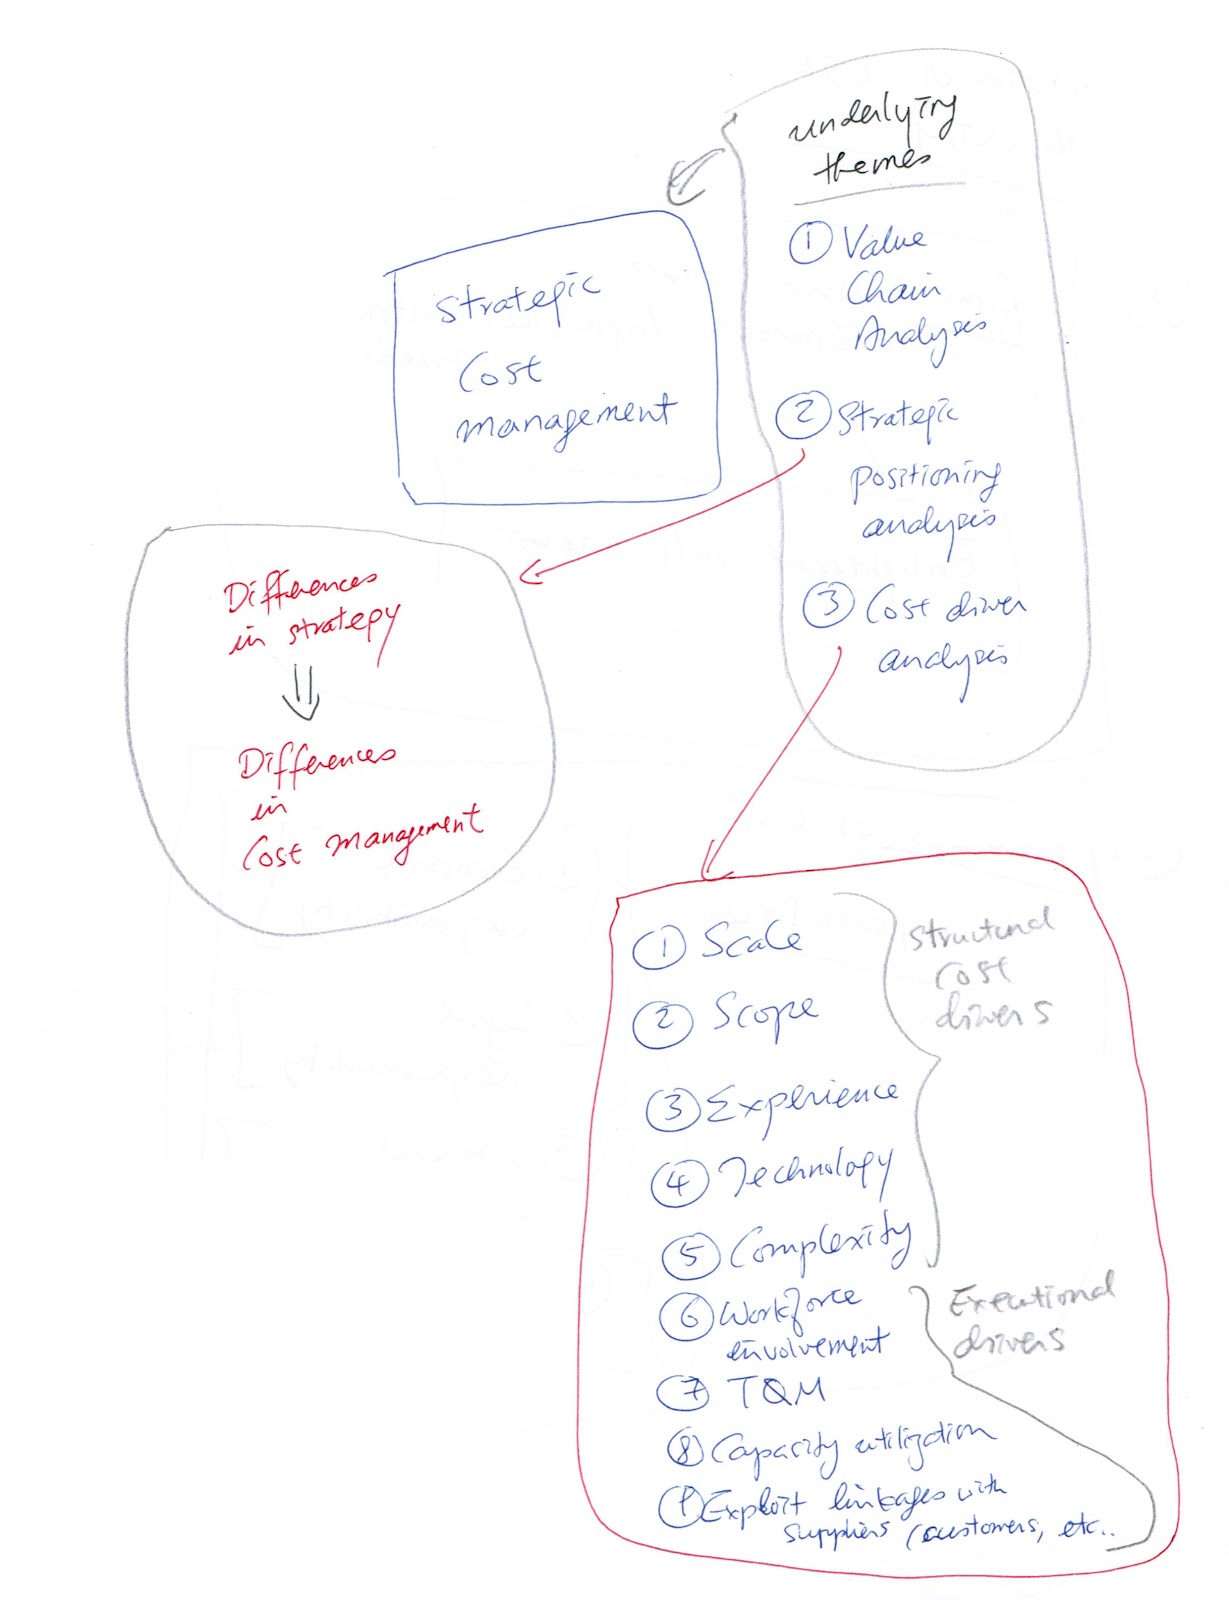 underlying
themes
① Value
Chain
Analysis
② Strategic
positioning
analysis
③ Cost driver
analysis
Strategic
Cost
management
Differences
in strategy
Differences
in
Cost management
① Scale
② Scope
③ Experience
④ Technology
⑤ Complexity
Structural
cost
drivers
⑥ Workforce
involvement
⑦ TQM
⑧ Capacity utilization
⑨ Exploit linkages with
suppliers / customers, etc..
Executional
drivers